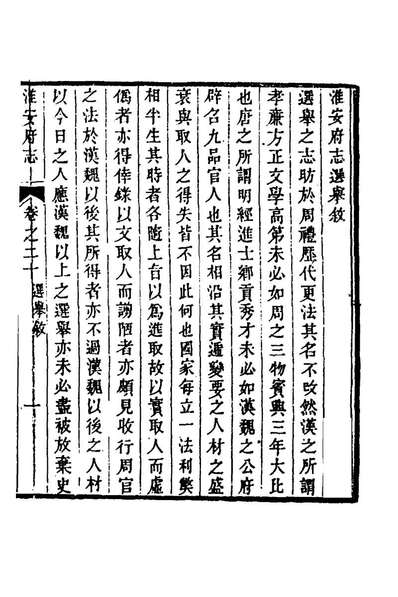 淮安府志選舉敘
選舉之志昉於周禮歷代更法其名不改然漢之所謂
孝亷方正文學高第未必如周之三物賓興三年大比
也唐之所謂明經進士鄉貢秀才未必如漢魏之公府
辟召九品官人也其名相沿其實遞變要之人材之盛
衰與取人之得失皆不因此何也國家每立一法利獘
相半生其時者各隨上旨以爲進取故以實取人而虛
僞者亦得倖錄以文取人而謭陋者亦頗見收行周官
之法於漢魏以後其所得者亦不過漢魏以後之人材
以今日之人應漢魏以上之選舉亦未必盡被放棄史
淮安府志
卷之二十
選舉敘
一